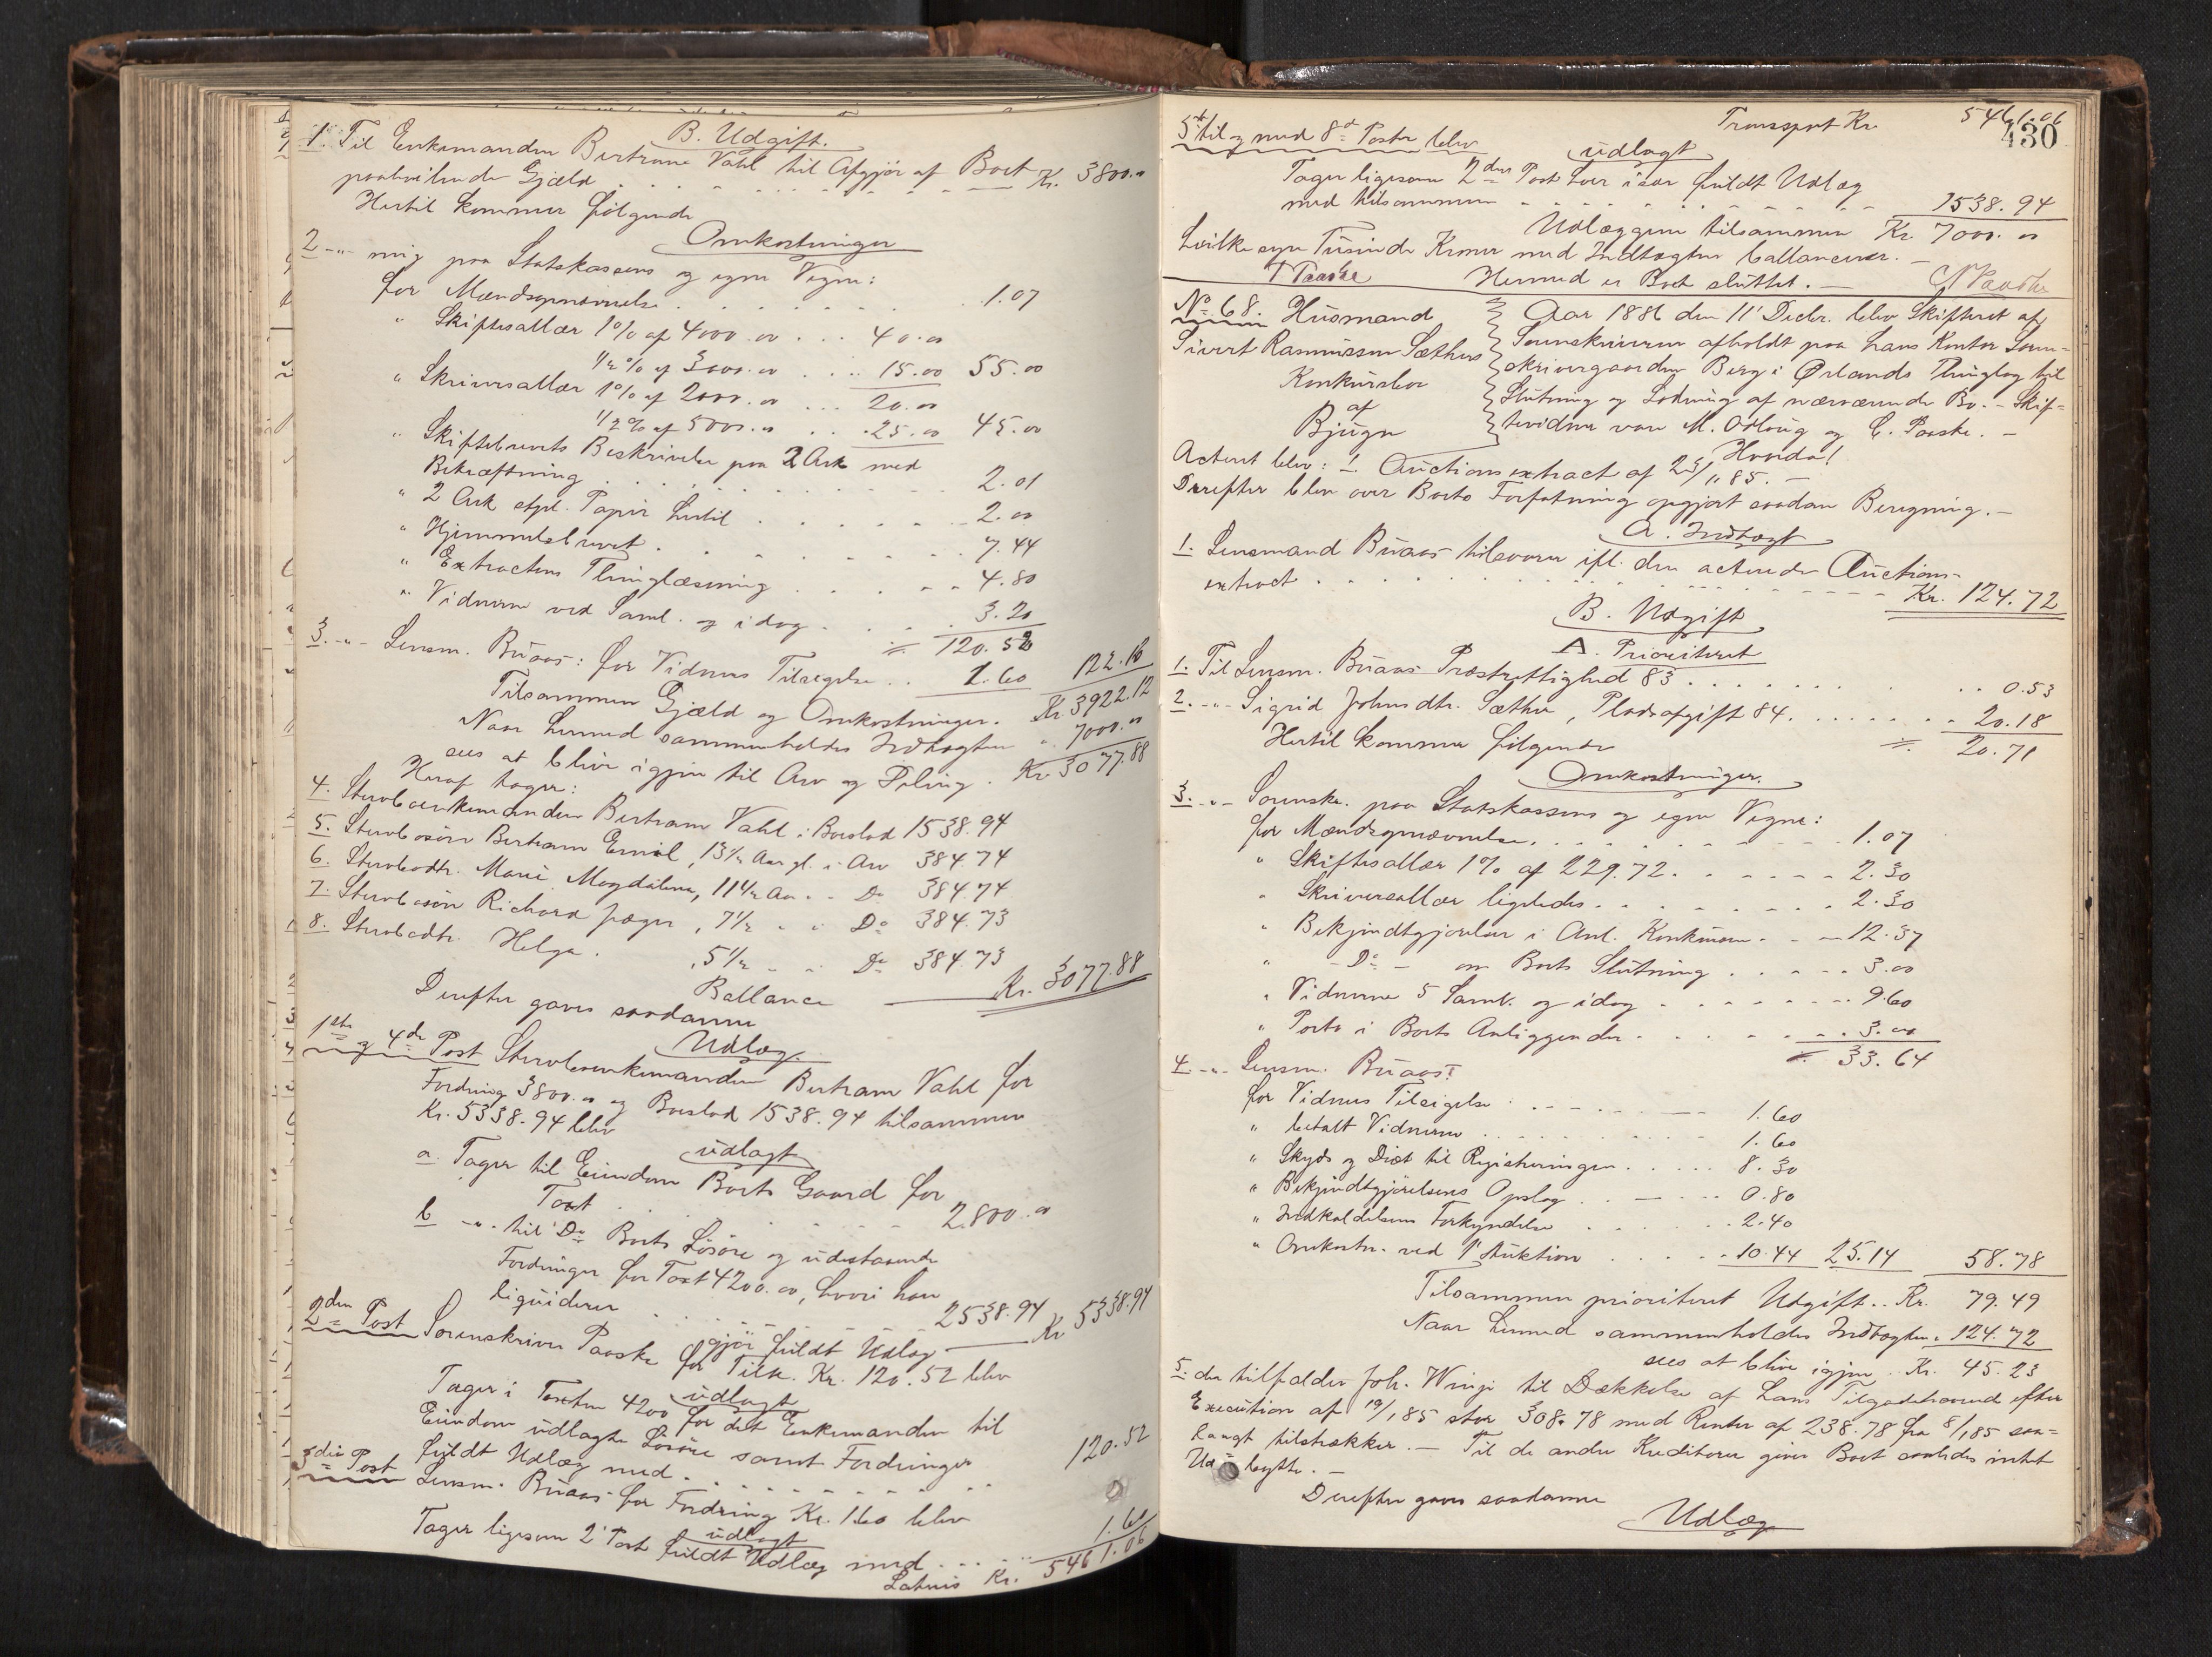 B. Udgift.
1. Til Enkemanden Bertram Vahl til Afgjør af Boet
paahvilende Gjæld . . . . Kr. 3800.00
Hertil kommer følgende
Omkostninger
2 -"- mig paa Statskassens og egne Vegne:
for Mændsopnævnelse . . . . 1.07
" Skiftesallær 1% af 4000.00 . . . 40.00
1/2% af 3000.00 . . . 15.00 55.00
" Skriversallær 1% af 2000.00 . . . 20.00
1/2% af 5000.00 . . . 25.00 45.00
" Skiftebrevets Beskrivelse paa 2 Ark med
Bekræftning . . . . 2.01
" 2 Ark stpl. Papir hertil . . . . 2.00
" Hjemmelsbrevet . . . . 7.44
" Extractens Thinglæsning . . . . 4.80
" Vidnerne ved Saml. og idag . . . . 3.20
÷ 120.52
3. -"- Lensm. Buaas: for Vidners Tilsigelse . . 1.60 122.12
Tilsammen Gjæld og Omkostninger . Kr 3922.12
Naar hermed sammenholdes Indtægten " 7000.00
sees at blive igjen til Arv og Deling . Kr. 3077.88
Heraf tager:
4. Stervboenkemanden Bertram Vahl i Boeslod 1538.94
5. Stervbosøn Bertram Emil, 13 1/2 Aar gl. i Arv 384.74
6. Stervbodtr. Marie Magdalene, 11 1/2 Aar - - Do 384.74
7. Stervbosøn Richard Jæger, 7 1/2 " " Do 384.73
8. Stervbodtr. Helga . , 5 1/2 " " Do 384.73
Ballance Kr. 3077.88
Derefter gaves saadanne
Udlæg
1ste og 4de Post Stervboenkemanden Bertram Vahl for
Fordring 3800.00 og Boeslod 1538.94 tilsammen
Kr. 5338.94 blev
udlagt
a. Tager til Eiendom Boets Gaard for
Taxt . . . . 2800.00
b -"- til Do Boets Løsøre og udestaaende
Fordringer for Taxt 4200.00, hvori han
liqviderer . . . . 2538.94
gjør fuldt Udlæg Kr 5338.94
2den Post Sorenskriver Paaske for Tilk. Kr. 120.52 blev
udlagt
Tager i Taxten 4200 for det Enkemanden til
Eiendom udlagte Løsøre samt Fordringer
fuldt Udlæg med . . . . 120.52
3die Post Lensm. Buaas for Fordring Kr. 1.60 blev
udlagt
Tager ligesom 2' Post fuldt Udlæg med . . . . 1.60
Latus Kr. 5461.06
430
Transport Kr. 5461.06
5te til og med 8de Poster blev
udlagt
Tager ligesom 2den Post hver især fuldt Udlæg
med tilsammen . . . . 1538.94
Udlæggene tilsammen Kr. 7000.00
hvilke syv Tusinde Kroner med Indtægten ballancerer. -
Paaske Hermed er Boet sluttet. - Paaske
No 68. Husmand
Sivert Rasmussen Sæthers
Konkursbo
af
Bjugn
Aar 1886 den 11' Decbr. blev Skifteret af
Sorenskriveren afholdt paa hans Kontor Soren=
skrivergaarden Berg i Ørlands Thinglag til
Slutning og Lodning af nærværende Bo. - Skif=
tevidner vare M. Odberg og C. Paaske. -
Hvorda!
Acteret blev: 1. Auctionsextract af 23/11 85. -
Derefter blev over Boets Forfatning opgjort saadan Beregning. -
A. Indtægt
1. Lensmand Buaas tilsvarer ifl. den acterede Auctions-
extract . . . . Kr. 124.72
B. Udgift
A. Prioriteret
1. Til Lensm. Buaas Præsterettighed 83 . . . . 0.53
2. -"- Sigrid Johnsdtr. Sæther, Pladsafgift 84. . . . 20.18
Hertil kommer følgende ÷ 20.71
Omkostninger.
3. -"- Sorenskr. paa Statskassens og egne Vegne:
for Mændsopnævnelse. . . . 1.07
" Skiftesallær 1% af 229.72. . . . 2.30
" Skriversallær ligeledes. . . . 2.30
" Bekjendtgjørelser i Anl. Konkursen. . - 12.37
" - Do - om Boets Slutning . . . . 3.00
" Vidnerne 5 Saml. og idag . . . . 9.60
" Porto i Boets Anliggender . . . . 3.00
÷ 33.64
4. -"- Lensm. Buaas:
for Vidners Tilsigelse . . . . 1.60
" betalt Vidnerne . . . . 1.60
" Skyds og Diæt til Registreringen . . . . 8.30
" Bekjendtgjørelsens Opslag . . . . 0.80
" Indkaldelsens Forkyndelse . . . . 2.40
" Omkostn. ved 1' Auktion . . . . 10.44 25.14 58.78
Tilsammen prioriteret Udgift . . Kr. 79.49
Naar hermed sammenholdes Indtægten " 124.72
sees at blive igjen . Kr. 45.23
5. der tilfalder Joh. Winge til Dækkelse af hans Tilgodehavend efter
Execution af 19/1 85 stor 308.78 med Renter af 238.78 fra 8/1 85 saa=
langt tilstrækker. - Til de andre Kreditorer giver Boet saaledes intet
Udbytte. -
Derefter gaves saadanne
Udlæg